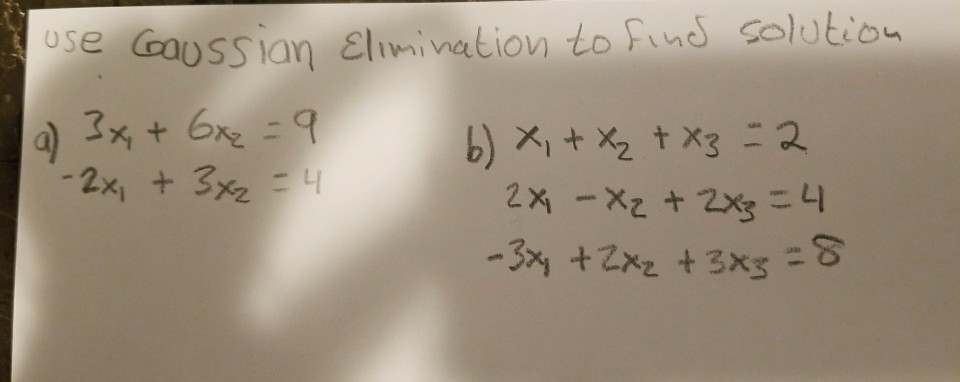 use Gaussian Elimination to find solution
a) 3x₁ + 6x₂ = 9
-2x₁ + 3x₂ = 4
b) x₁ + x₂ + x₃ = 2
2x₁ - x₂ + 2x₃ = 4
-3x₁ + 2x₂ + 3x₃ = 8